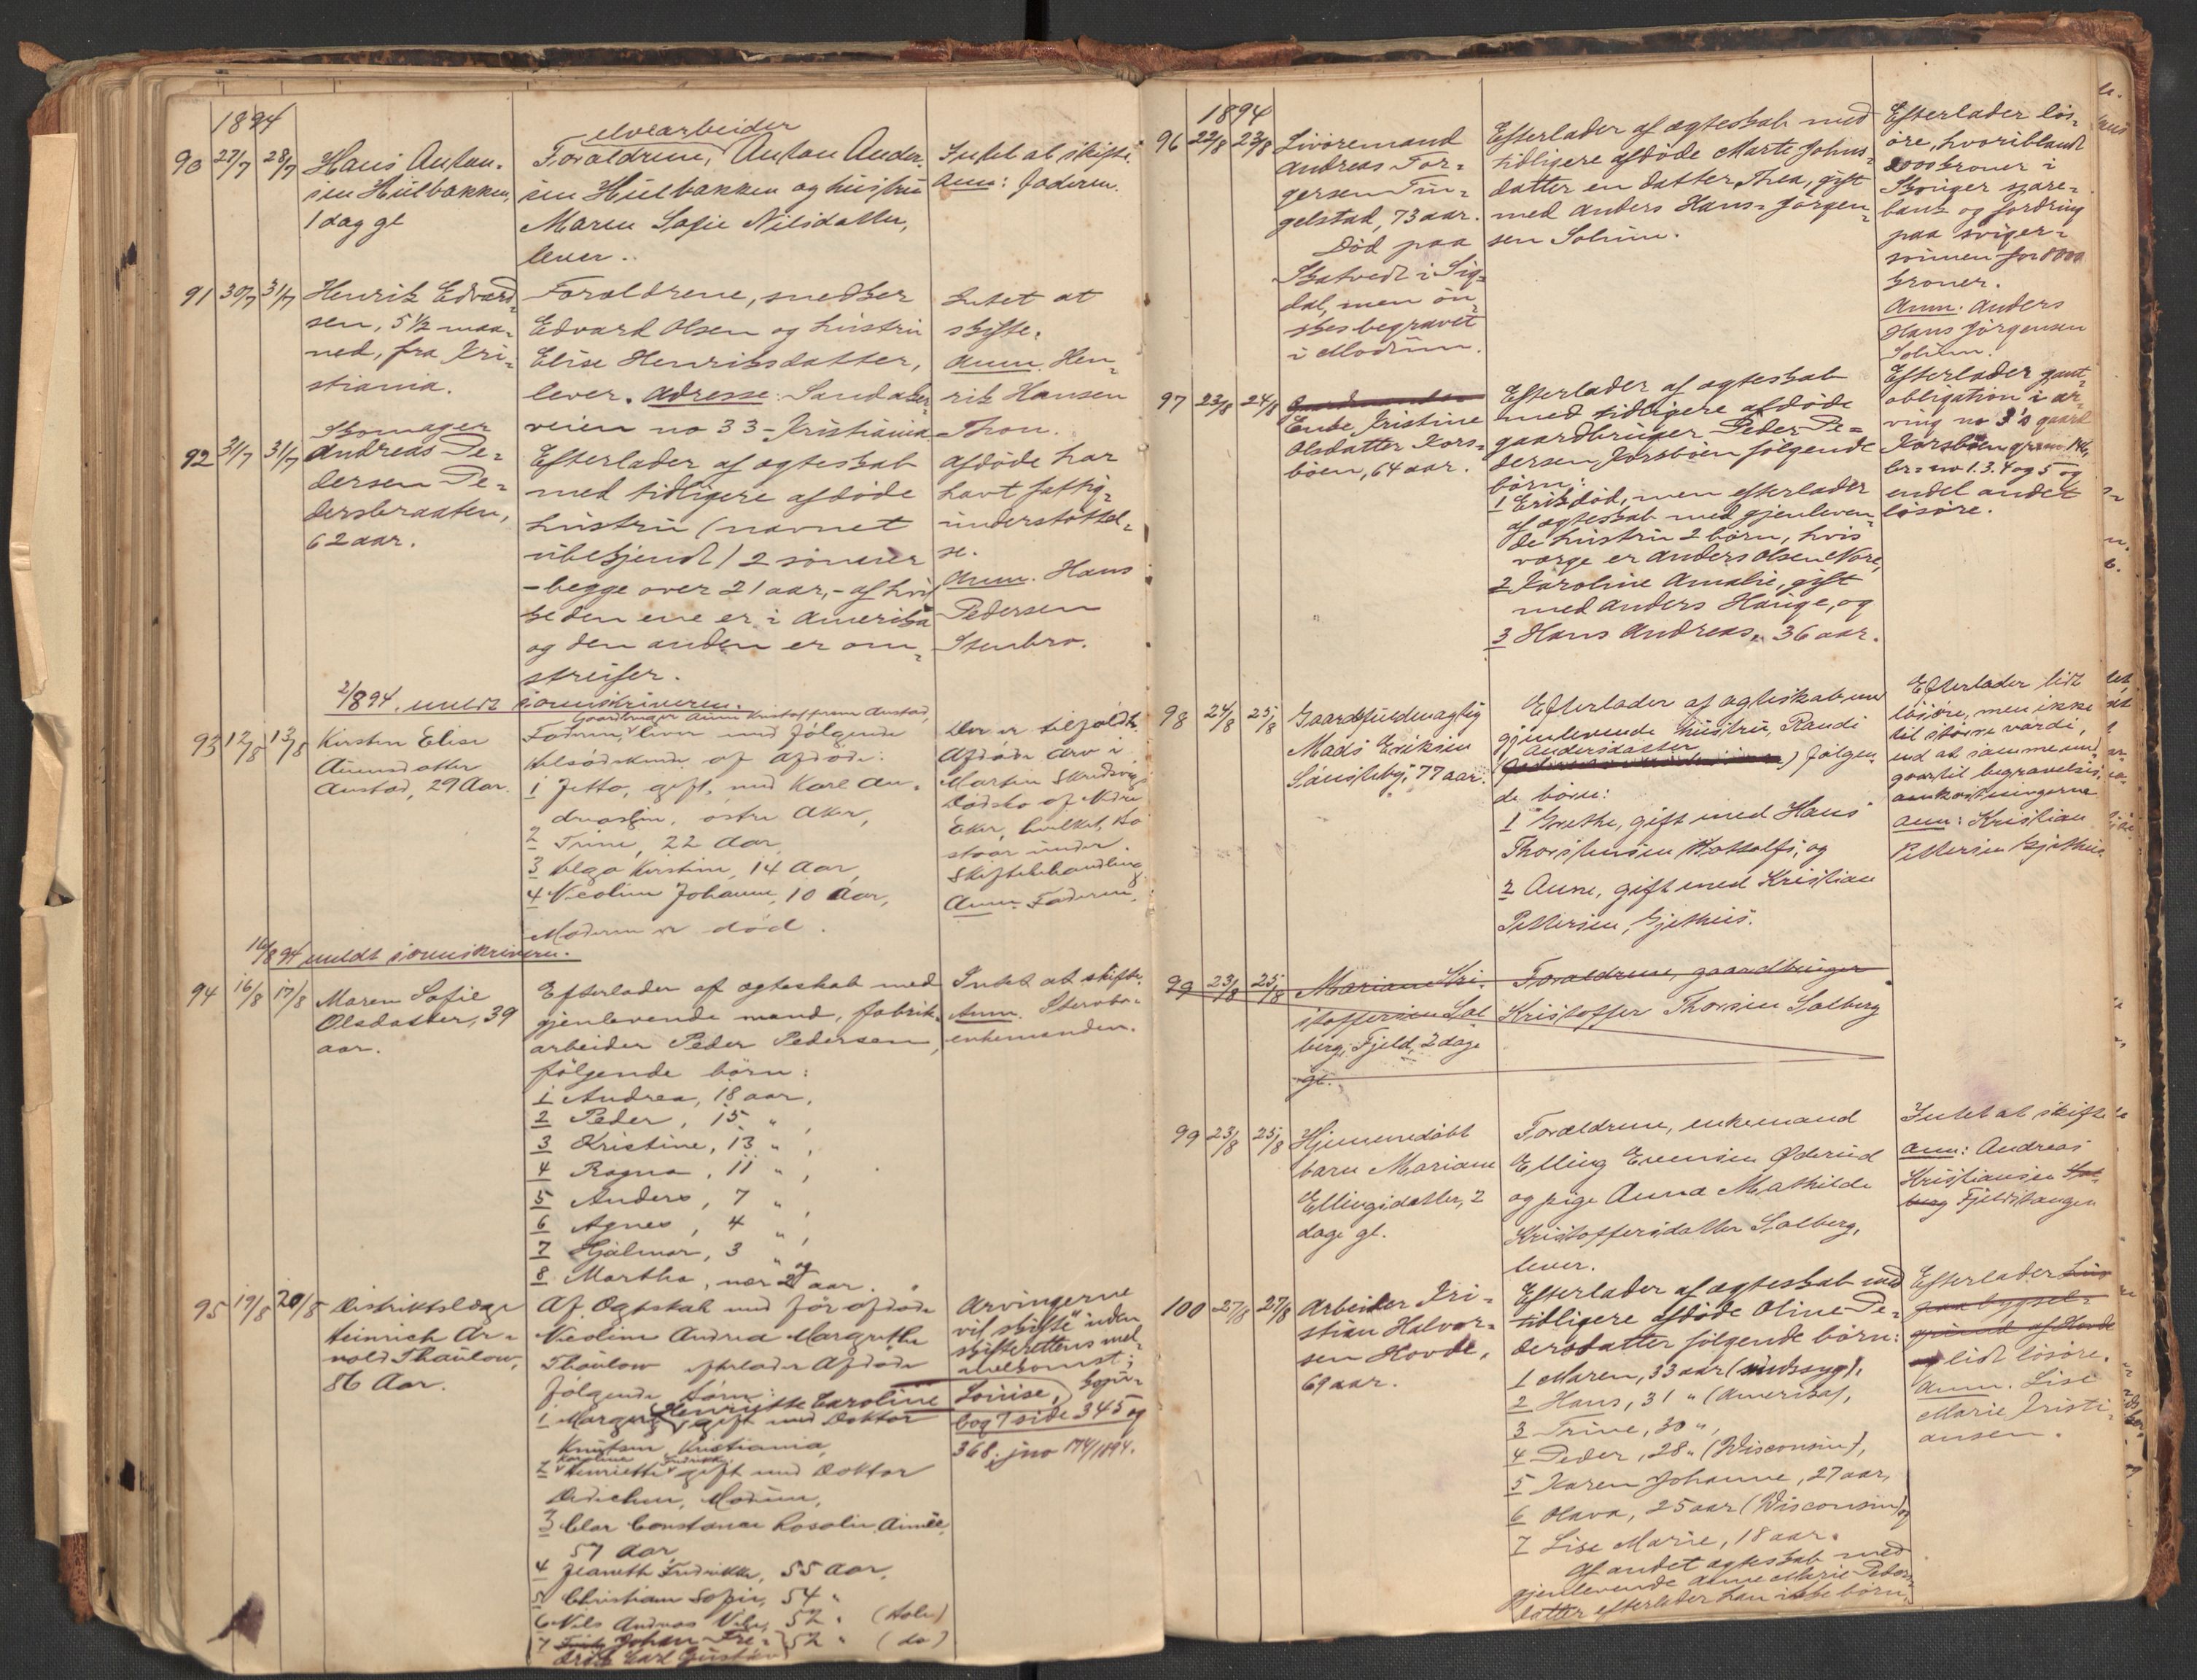 1894
90 27/7 28/7 Hans Anton-
sen Hulbakken,
1 dag gl
elvearbeider
Forældrene, Anton Ander-
sen Hulbakken og hustru
Maren Sofie Nilsdatter,
lever.
Intet at skifte.
Anm: Faderen.
91 30/7 31/7 Henrik Edvard
sen, 5 1/2 maa-
ned, fra Kri-
stiania.
Forældrene, snedker
Edvard Olsen og hustru
Elise Henriksdatter,
lever. Adresse: Sandaker-
veien no 33 - Kristiania
Intet at
skifte.
Anm. Hen-
rik Hansen
Thon.
92 31/7 31/7 Skomager
Andreas Pe-
dersen Pe-
dersbraaten,
62 aar.
Efterlader af ægteskab
med tidligere afdøde
hustru (navnet
ubekjendt) 2 sønner
- begge over 21 aar, - af hvil
ke den ene er i Amerika
og den anden er om-
streifer.
Afdøde har
havt fattig-
understøttel-
se.
Anm. Hans
Pedersen
Stenbro.
2/8 94. meldt sorenskriveren.
93 12/8 13/8 Kirsten Elise
Annesdatter
Aunstad, 29 Aar.
Gaardbruger Anne Kristoffersen Aunstad,
Faderen, lever med følgende
Helsødskende af Afdøde:
1 Jette, gift med Karl An-
dreassen, østre Aker,
2 Trine, 22 Aar,
3 Olga Kirstine, 14 Aar,
4 Nicoline Johanne, 10 Aar,
Moderen er død.
Der er tilfaldt
Afdøde Arv i
Martin Skredsvigs
Dødsbo af Nedre
Eker, hvilket bo
staar under
Skiftebehandling
Anm. Faderen,
16/8 94 meldt sorenskriveren.
94 16/8 17/8 Maren Sofie
Olsdatter, 39
aar.
Efterlader af ægteskab med
gjenlevende mand, fabrik-
arbeider Peder Pedersen,
følgende børn:
1 Andrea, 18 aar,
2 Peder, 15 ",
3 Kristine, 13 ",
4 Ragna, 11 ",
5 Anders, 7 ",
6 Agnes, 4 ",
7 Hjalmar, 3 " og
8 Martha, nær 2 aar.
Intet at skifte.
Anm.
enkemanden.
95 19/8 20/8 Distriktslæge
Heinrich Ar-
nold Thaulow,
86 Aar.
Af Ægteskab med før afdøde
Nicoline Andrea Margrethe
Thaulow efterlader Afdøde
følgende børn:
1 Henriette Caroline Louise,
gift med Doktor
Knutsen, Kristiania,
2 Henriette gift med Doktor
Modum,
3 Clar Constance Rosalie Aimée,
57 Aar,
4 Jeanette Fredrikke, 55 Aar,
5 Christiane Sofie, 54 "
6 Nils Andreas 52 "
7 Johan Fre-
drik Carl Gustav 52 " (do)
Arvingerne
vil skifte uden
skifterettens mel-
lemkomst;
Kopi-
bog 7 side 345 og
368. jno 174/1894.
1894
96 22/8 23/8 Livøremand
Andreas Tor-
gersen Tin-
gelstad, 73 aar.
Død paa
Skatvedt i Sig-
dal, men øn-
skes begravet
i Modum.
Efterlader af ægteskab med
tidligere afdøde Marte Johns-
datter en datter, Thea, gift
med Anders Hans-Jørgen-
sen Solum.
Efterlader løs-
øre, hvoriblandt
2000 kroner i
Skoger spare-
bank og fordring
paa sviger-
sønnen for 8000
kroner.
Anm. Anders
Hans Jørgensen
Solum.
97 23/8 24/8
Enke Kristine
Olsdatter Kors-
bøen, 64 aar.
Efterlader af ægteskab
med tidligere afdøde
gaardbruger Peder Pe-
dersen Korsbøen følgende
børn:
1 Erik død, men efterlader
af ægteskab med gjenleven-
de hustru 2 børn, hvis
værge er Anders Olsen Nore,
2 Karoline Amalie, gift
med Anders Hauge, og
3 Hans Andreas, 36 aar.
Efterlader pant-
obligation i ar-
ving no 3's gaard
Korsbøen,
br.no 1.3.4 og 5 og
endel andet
løsøre.
98 24/8 25/8 Gaardsfuldmægtig
Mads Eriksen
Sønsteby, 77 aar.
Efterlader af ægteskab med
gjenlevende hustru, Randi
Andersdatter
følgen-
de børn:
1 Grethe, gift med Hans
Thorstensen og
2 Anne, gift med Kristian
Pettersen, Gjethus.
Efterlader lidt
løsøre, men ikke
til større værdi,
end at samme med
gaar til begravelses
omkostningerne
Anm: Kristian
Pettersen Gjethus.
99 23/8 25/8 Mariane Kri-
stoffersen Sol
berg, Fjeld, 2 dage
gl.
Forældrene, gaardbruger
Kristoffer Thorsen Solberg
99 23/8 25/8 Hjemmedøbt
barn Mariane
Ellingsdatter, 2
dage gl.
Forældrene, enkemand
Elling Evensen Øderud
og pige Anna Mathilde
Kristoffersdatter Solberg,
lever.
Intet at skifte
Anm: Andreas
Kristiansen Sol-
berg Fjeldstangen
100 27/8 27/8 Arbeider Kri-
stian Halvor-
sen Hovde,
69 aar.
Efterlader af ægteskab med
tidligere afdøde Oline Pe-
dersdatter følgende børn:
1 Maren, 33 aar (sindssyg),
2 Hans, 31 " (Amerika),
3 Trine, 30 ",
4 Peder, 28 " (Wisconsin),
5 Karen Johanne, 27 aar,
6 Olava, 25 aar (Wisconsin) og
7 Lise Marie, 18 aar.
Af andet ægteskab med
gjenlevende Anne Marie Peders-
datter efterlader han ikke børn.
Efterlader hus
paa bygsel-
grund af Hovde
og lidt løsøre.
Anm. Lise
Marie Kristi-
ansen.